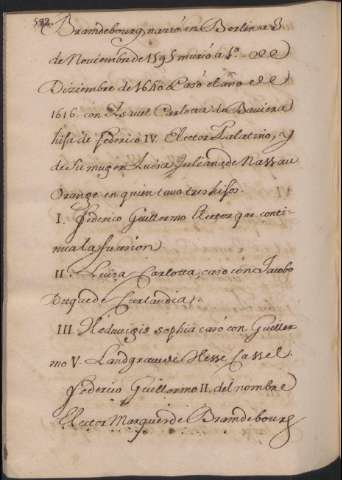 582.
Bramdebourg, nacio en Berlin a 8
de Noviembre de 1595 murio a 1º de
Diziembre de 1640 Casó el año de
1616. con Isavel Carlota de Baviera
hija de Federico IV. Elector Palatino, y
de su muger Luisa Juliana de Nassau
Orange en quien tuvo tres hijos.
I. Federico Guillermo Elector que conti-
nua la succion
II. Luiza Carlotta, caso con Jacobo
Duque de Curlandia,
III. Heduvigis sophia casó con Guiller
mo V. Landgrave de Hesse Cassel.
Federico Guillermo II. del nombre
Elector Marques de Bramdebourg